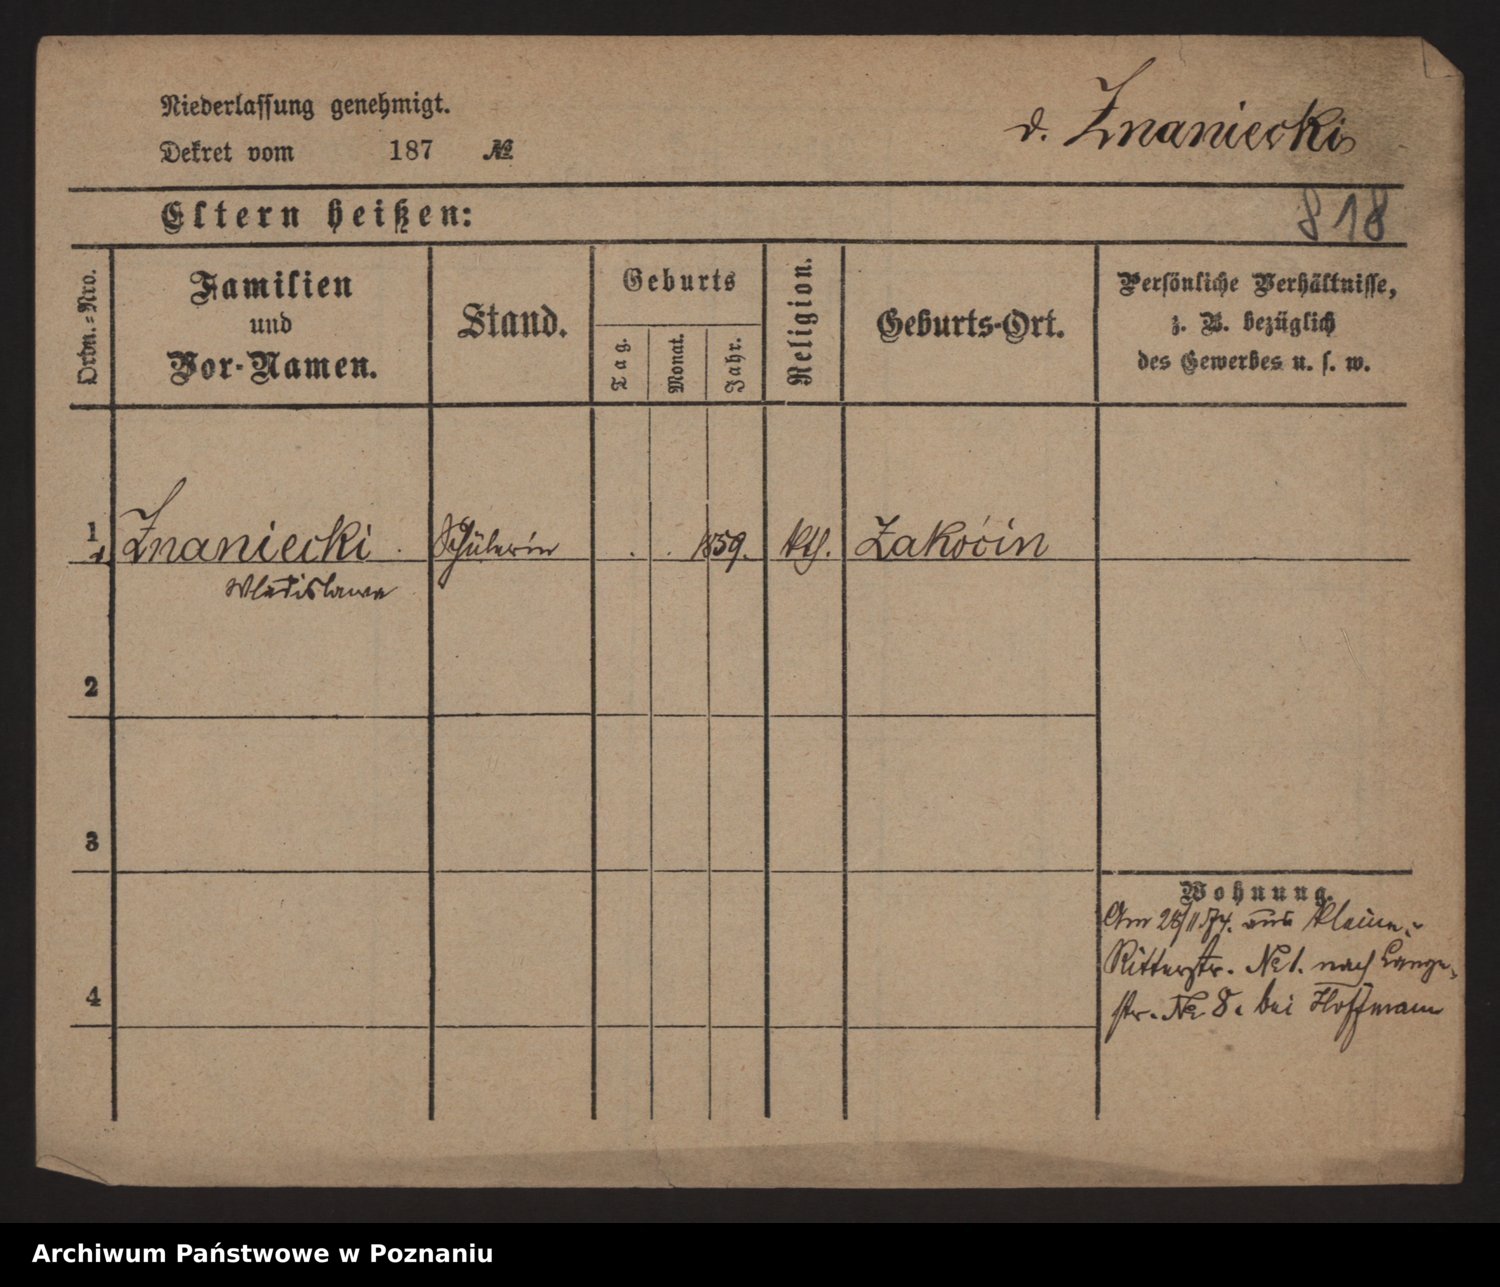 Niederlassung genehmigt.
Dekret vom 187 №
d. Znaniecki
Eltern heißen:
818
Ordn.-Nro.
Familien
und
Vor-Namen.
Stand.
Geburts
Tag.
Monat.
Jahr.
Religion.
Geburts-Ort.
Persönliche Verhältnisse,
z. B. bezüglich
des Gewerbes u. s. w.
1 Znaniecki Schülerin . . 1859. kth. Zakocin
Wladislawa
2
3
4
Wohnung.
Am 28/11 74. aus kleine-
Ritterstr. № 1. nach Lange-
str. № 8. bei Hoffmann
Archiwum Państwowe w Poznaniu